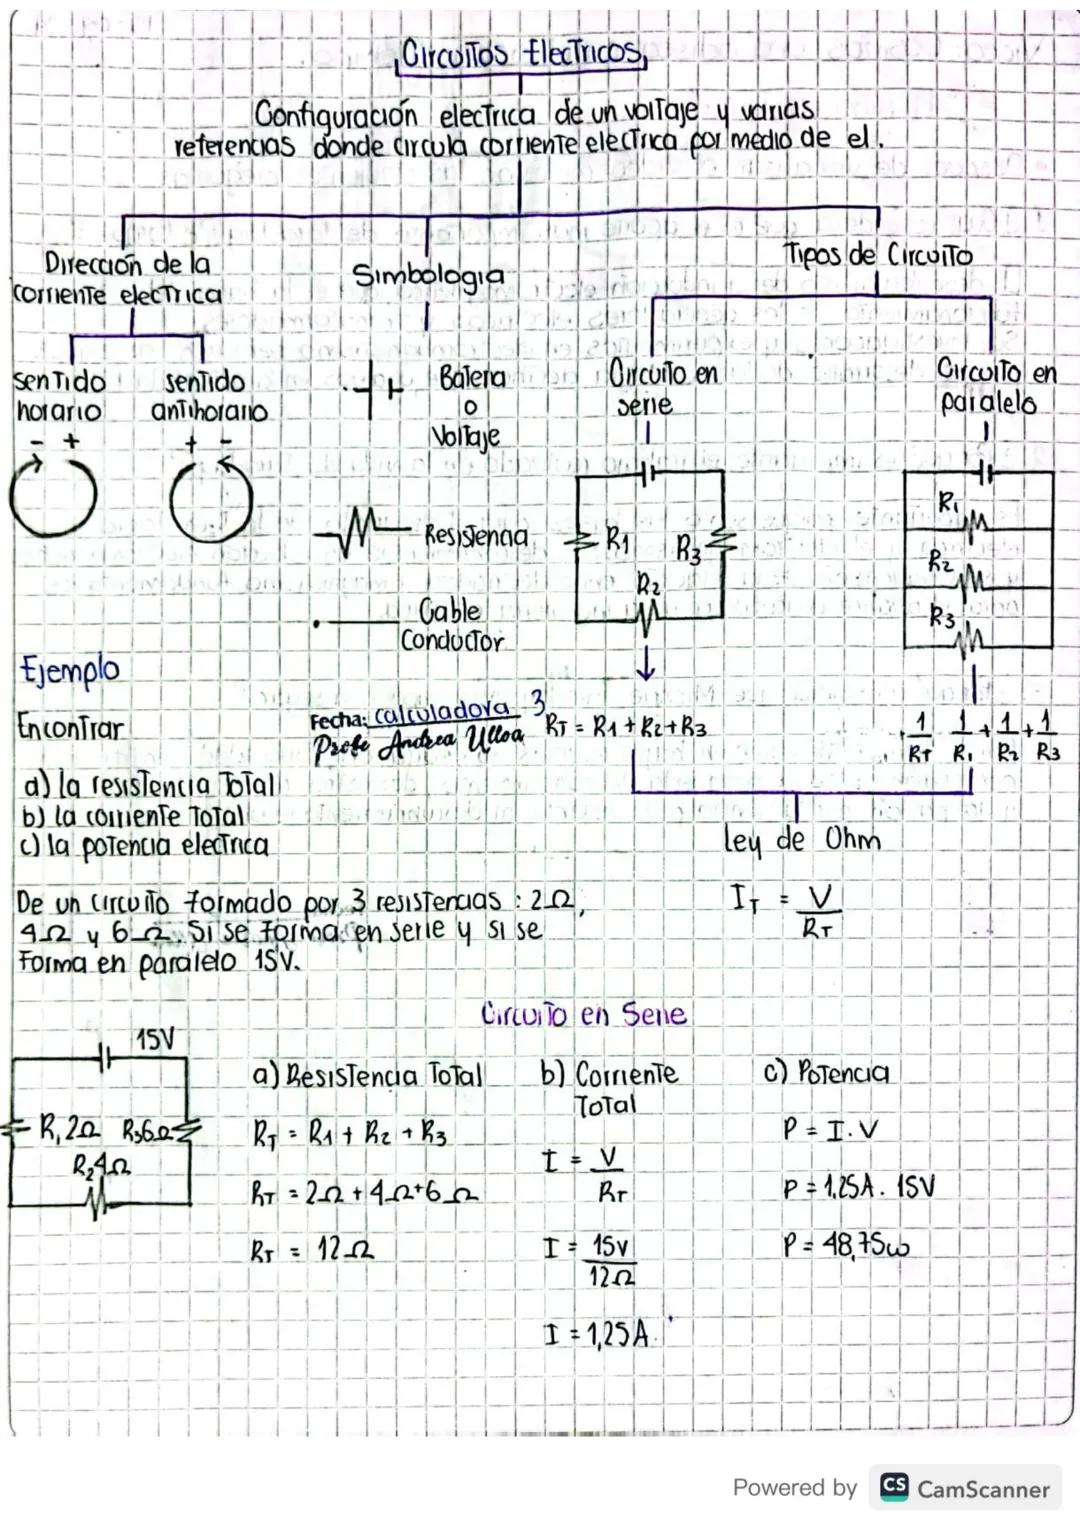 Circuitos Electricos
Configuración electrica de un voltaje y varias
referencias donde circula corriente electrica por medio de el.
Dirección de la
corriente electrica
Simbologia
Tipos de Circuito
sentido
horario
sentido
antihorario
- +
+ -
Bateria
o
Voltaje
Resistencia
Cable
Conductor
Circuito en
serie
Circuito en
paralelo
R1
R3
R2
R1
R2
R3
RT = R1 + R2 + R3
1/RT 1/R1 + 1/R2 + 1/R3
Ley de Ohm
IT = V/RT
Ejemplo
Fecha: calculadora 3
Profe Andrea Ulloa
Encontrar
a) la resistencia Total
b) la corriente Total
c) la potencia electrica
De un circuito formado por 3 resistencias : 2Ω,
4Ω y 6Ω. Si se forma en serie y si se
Forma en paralelo 15V.
Circuito en Serie
15V
R1 2Ω R3 6Ω
R2 4Ω
a) Resistencia Total
RT = R1 + R2 + R3
RT = 2Ω + 4Ω + 6Ω
RT = 12Ω
b) Corriente
Total
I = V/RT
I = 15v/12Ω
I = 1,25A.
c) Potencia
P = I.V
P = 1,25A . 15V
P = 48,75w
Powered by CS CamScanner